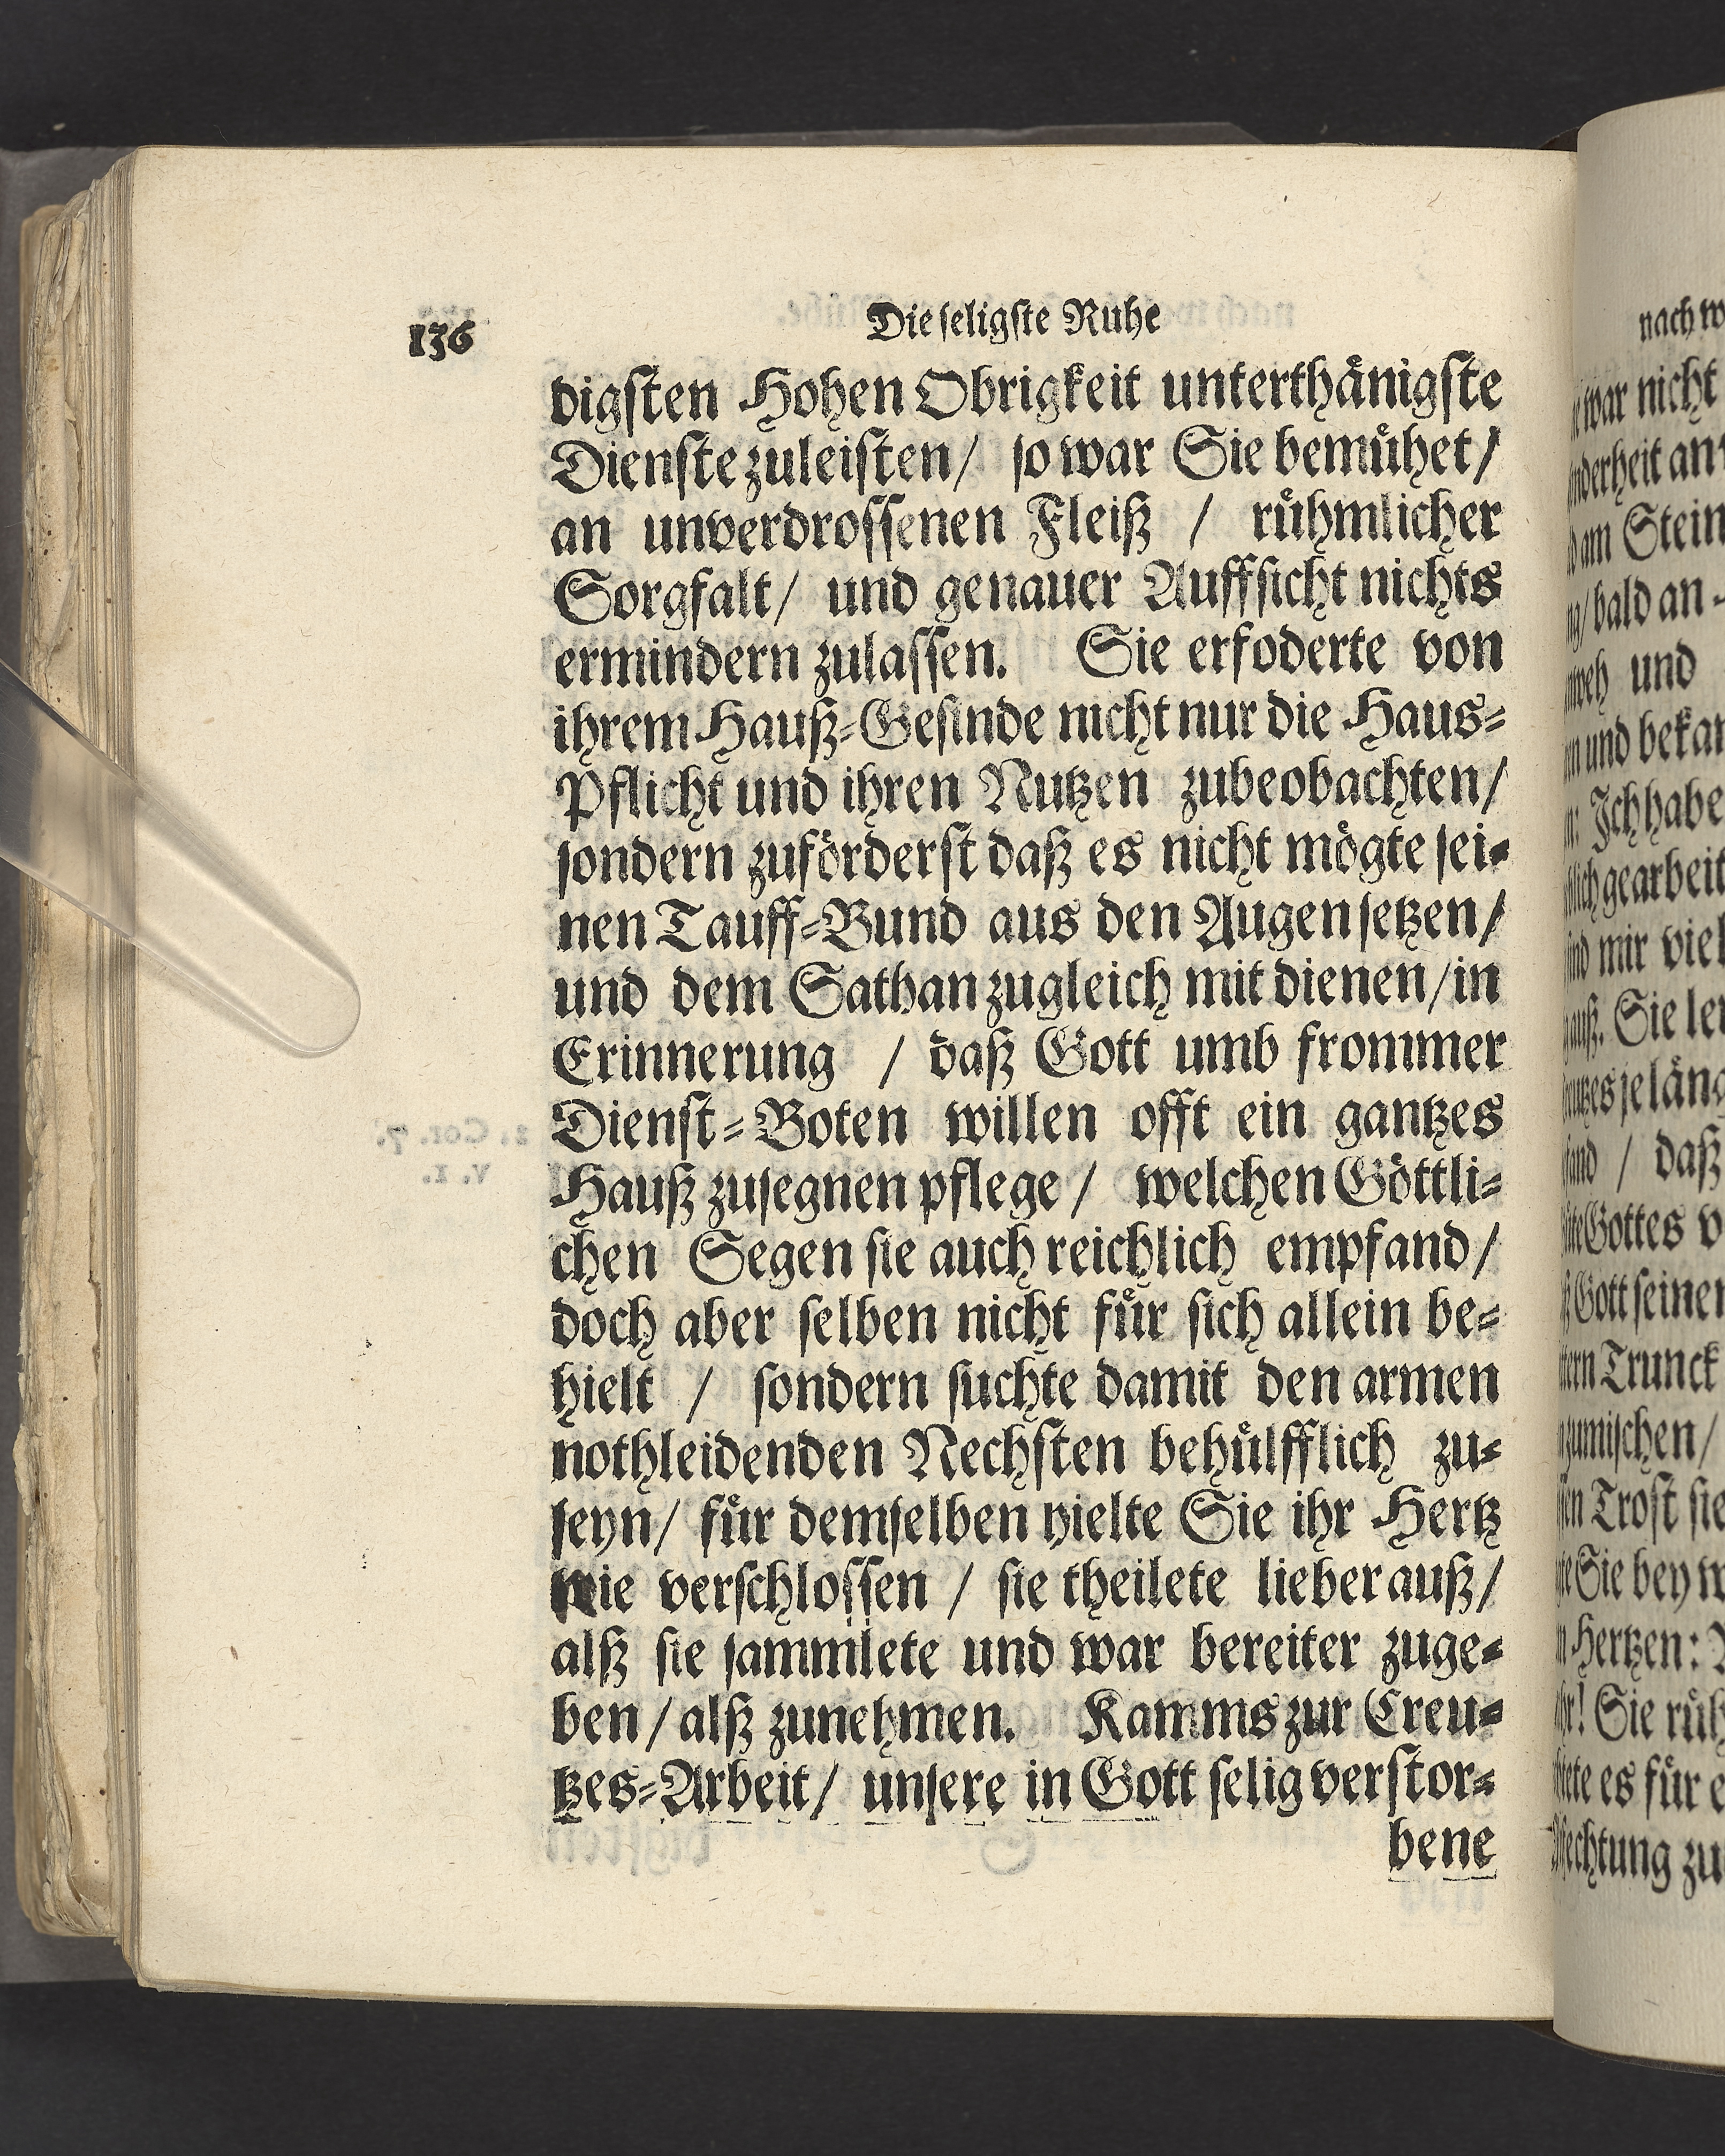 136
Die seligste Ruhe
digsten Hohen Obrigkeit unterthänigste
Dienste zuleisten/ so war Sie bemühet/
an unverdrossenen Fleiß / rühmlicher
Sorgfalt/ und genauer Auffsicht nichts
ermindern zulassen. Sie erfoderte von
ihrem Hauß-Gesinde nicht nur die Haus-
Pflicht und ihren Nutzen zubeobachten/
sondern zuförderst daß es nicht mögte sei-
nen Tauff-Bund aus den Augen setzen/
und dem Sathan zugleich mit dienen/in
Erinnerung / daß Gott umb frommer
Dienst-Boten willen offt ein gantzes
Hauß zusegnen pflege/ welchen Göttli-
chen Segen sie auch reichlich empfand/
doch aber selben nicht für sich allein be-
hielt / sondern suchte damit den armen
nothleidenden Nechsten behülfflich zu-
seyn/ für demselben hielte Sie ihr Hertz
nie verschlossen / sie theilete lieber auß/
alß sie sammlete und war bereiter zuge-
ben/alß zunehmen. Kamms zur Creu-
tzes-Arbeit/ unsere in Gott selig verstor-
bene
nach
war nicht
am Stein
bald an-
und
und bekan
Ich habe
gearbeit
mir viel
Sie
/ daß
Gottes
Gott seiner
Trunck
Trost sie
Sie bey
Hertzen:
Sie
es für
zu